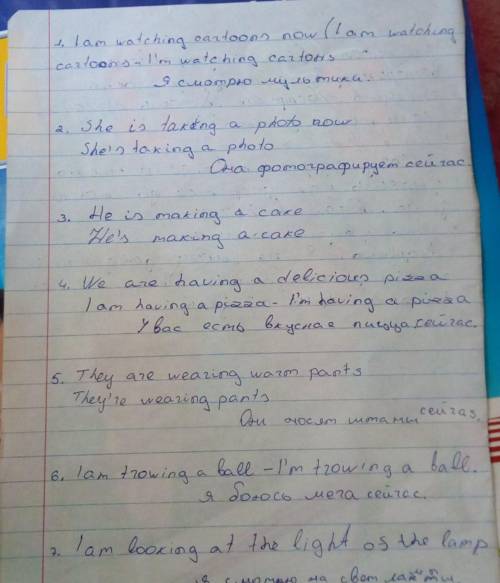 1. I am watching cartoons now (I am watching
cartoons - I'm watching cartons
Я смотрю мультики.
2. She is taking a photo now
She's taking a photo
Она фотографирует сейчас.
3. He is making a cake
He's making a cake
4. We are having a delicious pizza
I am having a pizza - I'm having a pizza
У вас есть вкусная пицца сейчас.
5. They are wearing warm pants
They're wearing pants
Они носят штаны сейчас.
6. I am trowing a ball - I'm trowing a ball.
я бросаю мяч сейчас.
7. I am looking at the light of the lamp
я смотрю на свет